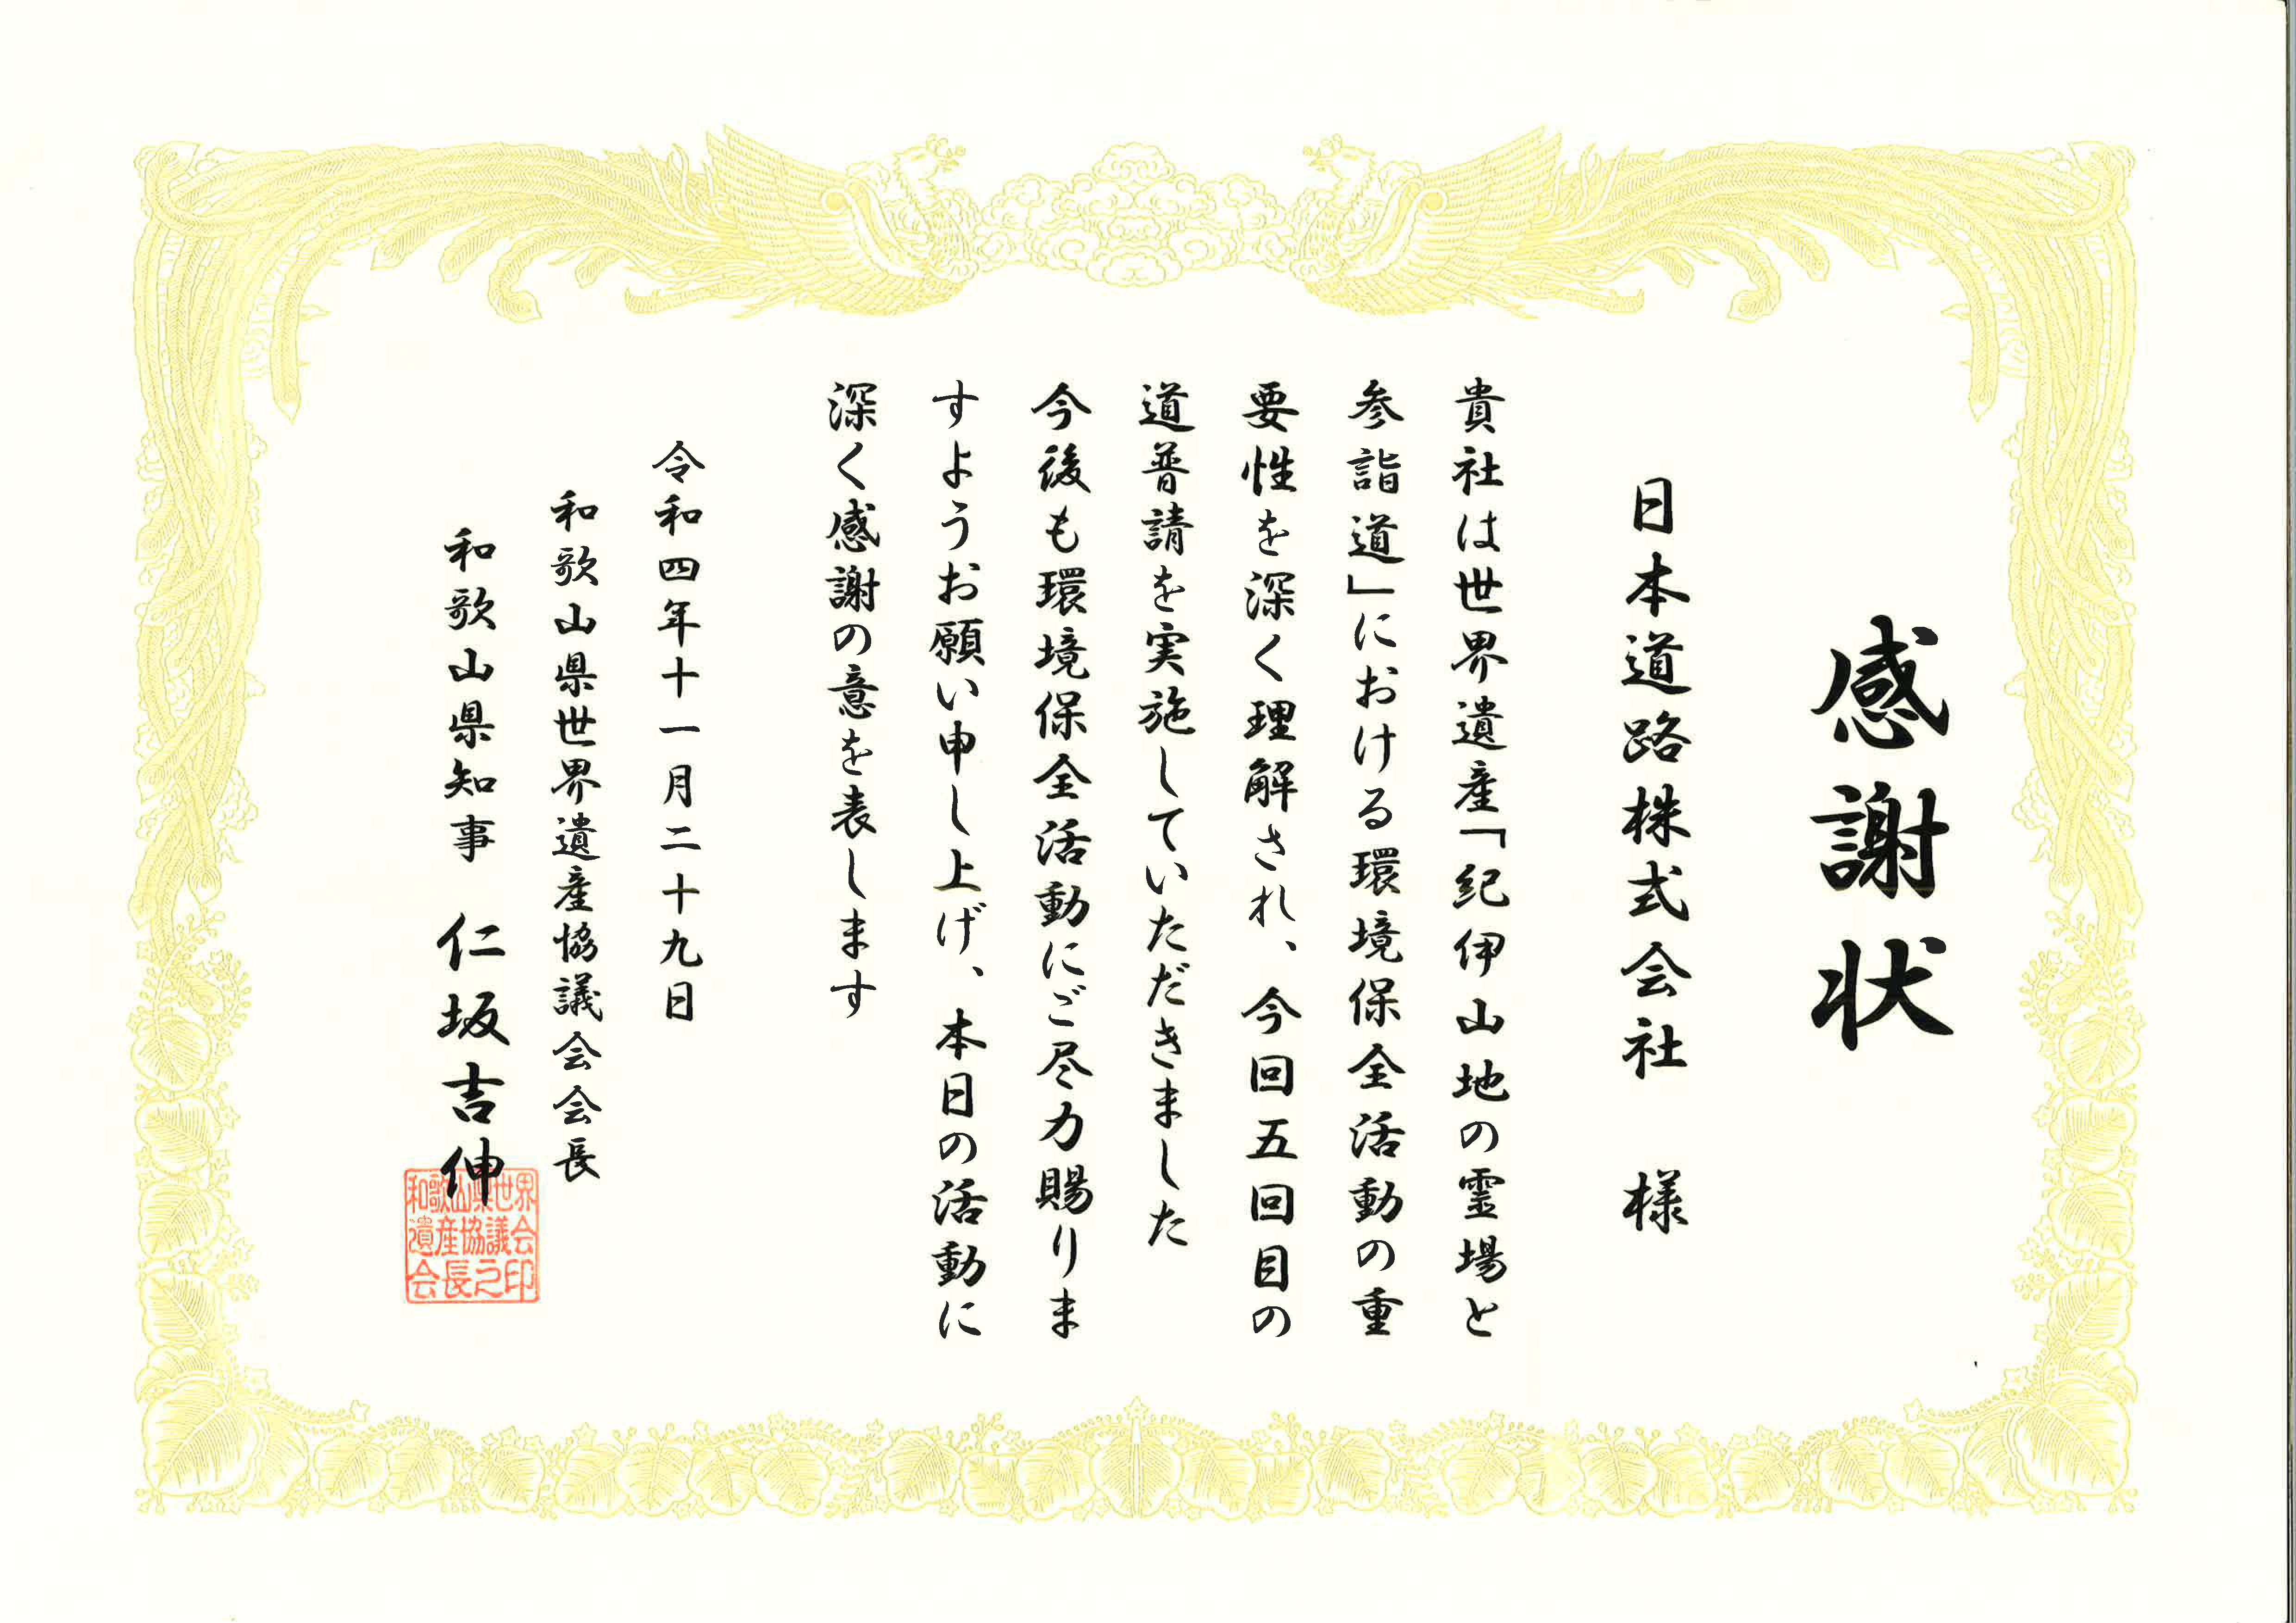 感謝状
日本道路株式会社　様
貴社は世界遺産「紀伊山地の霊場と
参詣道」における環境保全活動の重
要性を深く理解され、今回五回目の
道普請を実施していただきました
今後も環境保全活動にご尽力賜りま
すようお願い申し上げ、本日の活動に
深く感謝の意を表します
令和四年十一月二十九日
和歌山県世界遺産協議会会長
和歌山県知事　仁坂吉伸
和歌山県世界
遺産協議会
会長之印